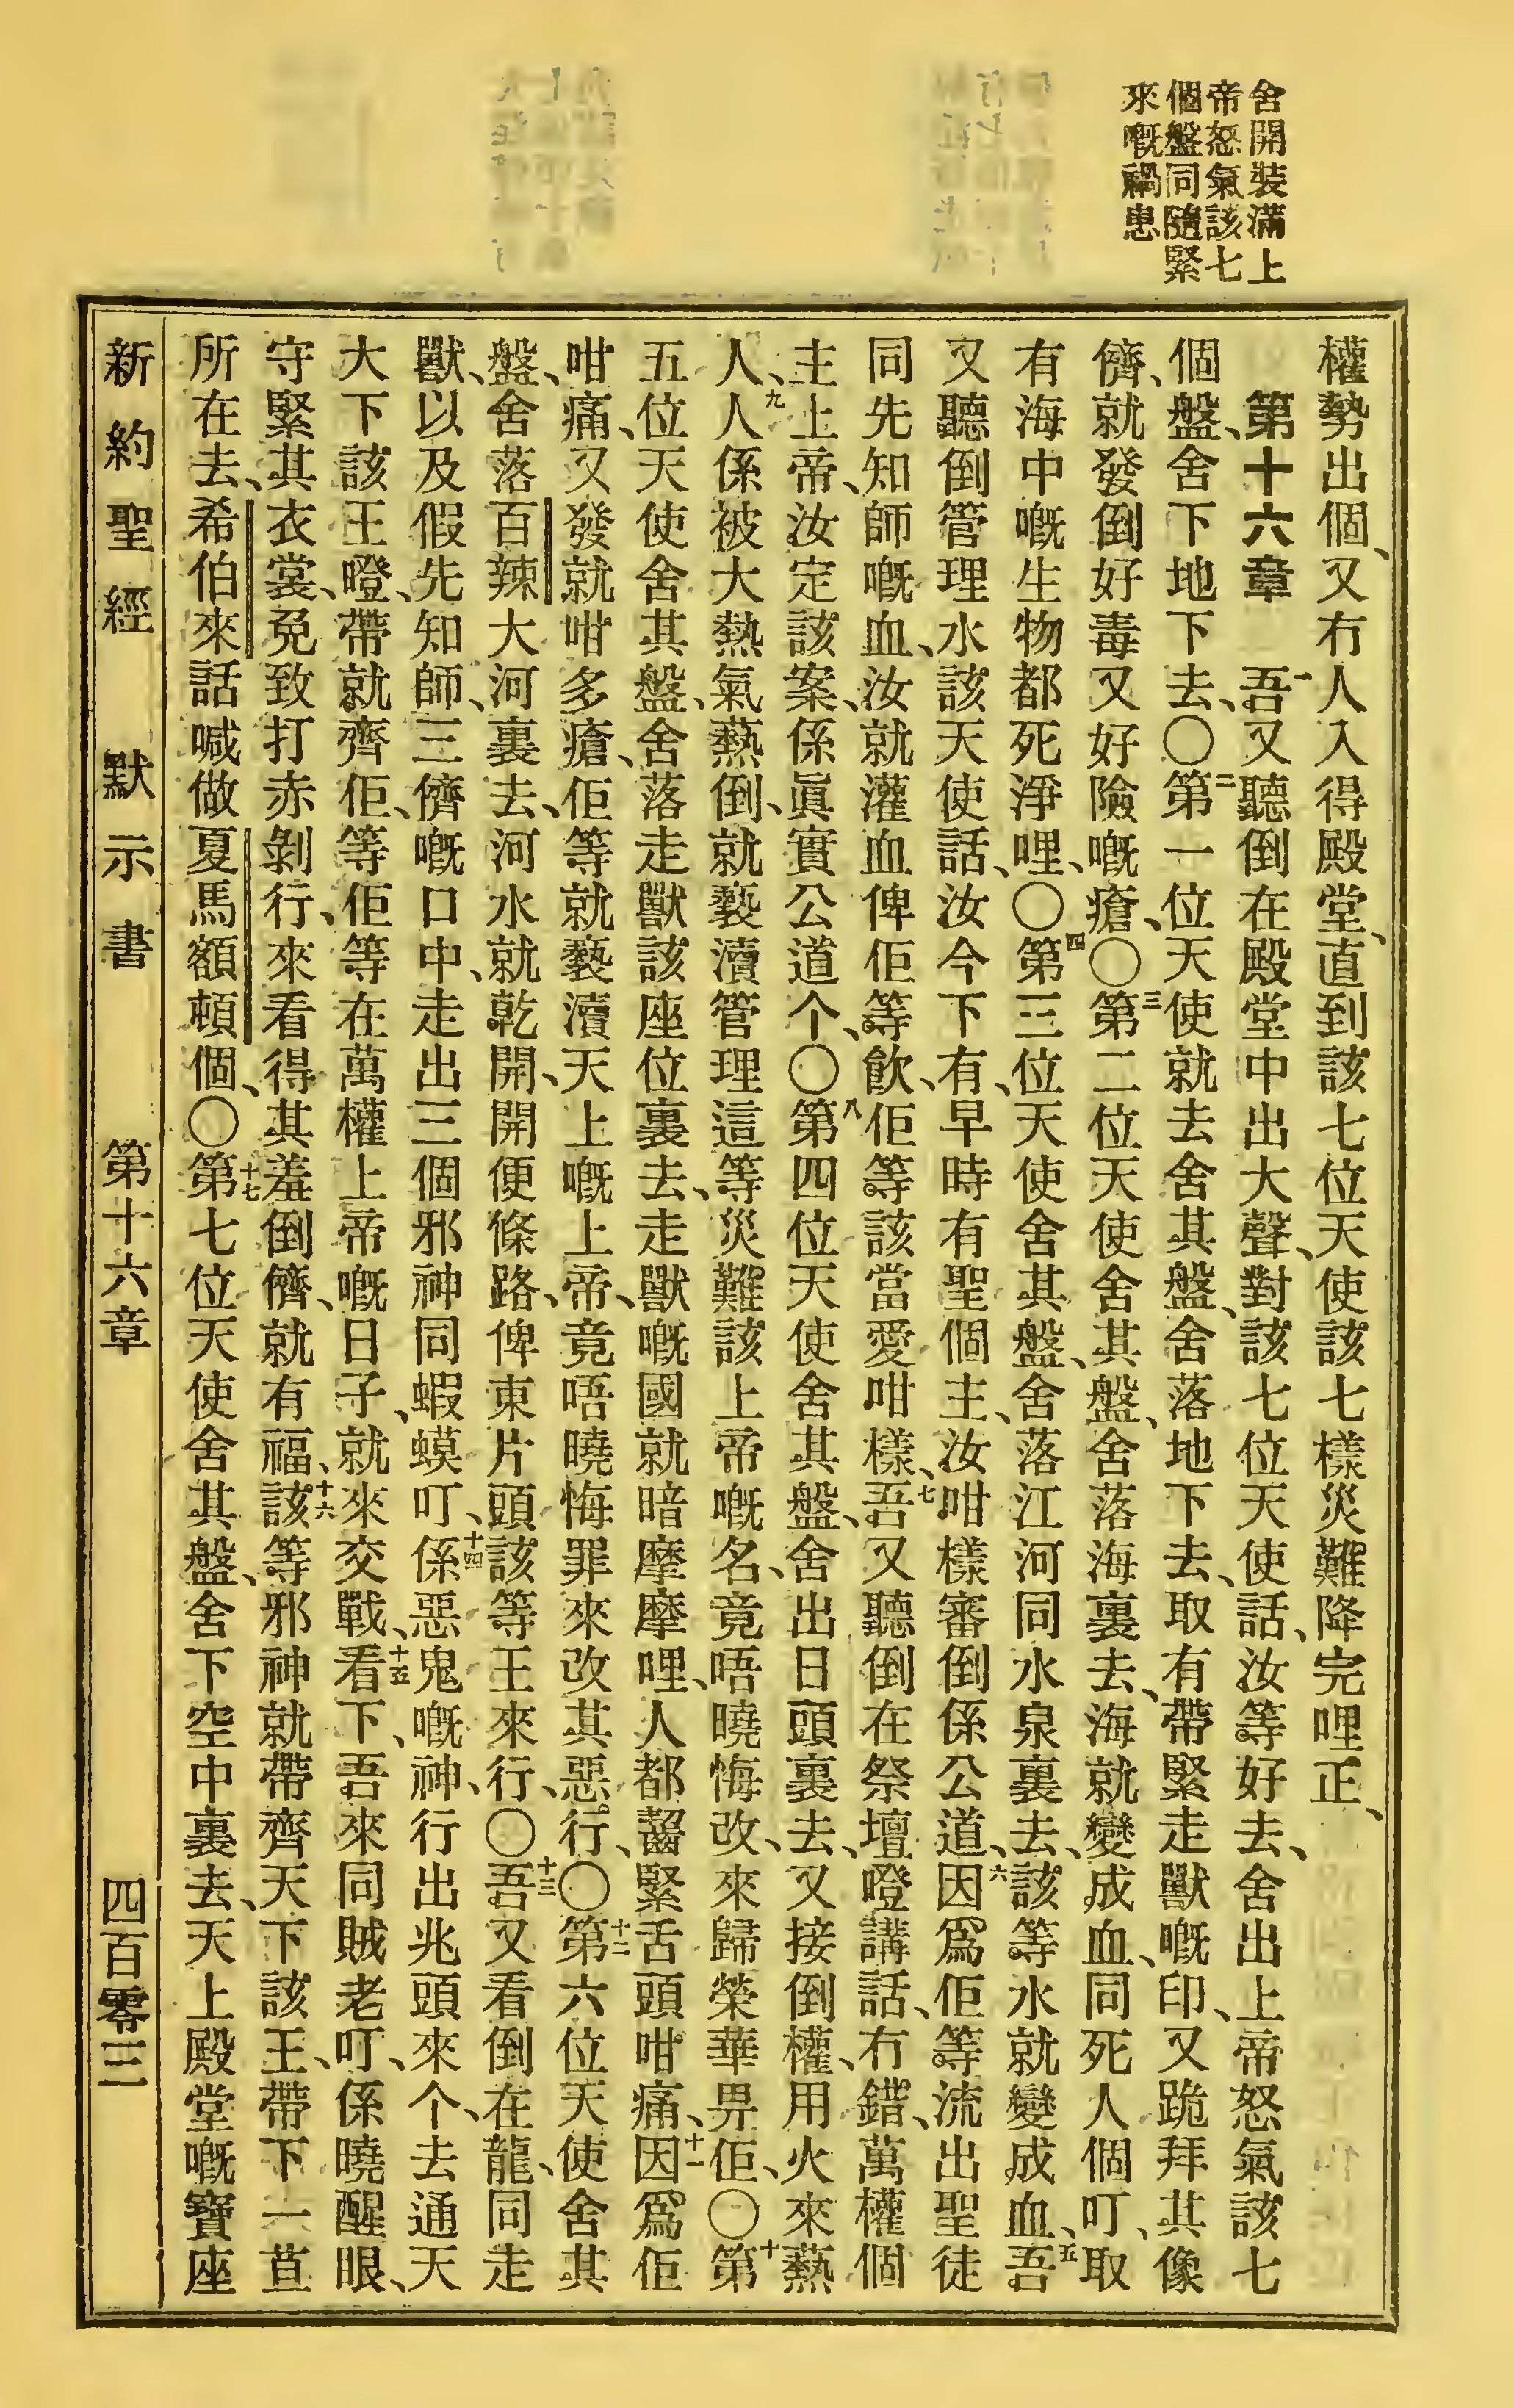 舍開裝滿上
帝怒氣該七
個盤同隨緊
來嘅禍患
權勢出個、又冇人入得殿堂、直到該七位天使該七樣災難降完哩正、
第十六章　一吾又聽倒在殿堂中出大聲、對該七位天使話、汝等好去、舍出上帝怒氣該七
個盤、舍下地下去、〇二第一位天使就去舍其盤、舍落地下去、取有帶緊走獸嘅印、又跪拜其像
儕、就發倒好毒又好險嘅瘡、〇三第二位天使舍其盤、舍落海裏去、海就變成血、同死人個叮、取
有海中嘅生物都死淨哩、〇四第三位天使舍其盤、舍落江河同水泉裏去、該等水就變成血、五吾
又聽倒管理水該天使話、汝今下有、早時有聖個主、汝咁樣審倒係公道、六因爲佢等流出聖徒
同先知師嘅血、汝就灌血俾佢等飲、佢等該當愛咁樣、七吾又聽倒在祭壇嶝講話、冇錯、萬權個
主上帝、汝定該案、係眞實公道个、〇八第四位天使舍其盤、舍出日頭裏去、又接倒權、用火來爇
人、九人係被大熱氣爇倒、就褻瀆管理這等災難該上帝嘅名、竟唔曉悔改、來歸榮華畀佢、〇十第
五位天使舍其盤、舍落走獸該座位裏去、走獸嘅國就暗摩摩哩、人都齧緊舌頭咁痛、十一因爲佢
咁痛、又發就咁多瘡、佢等就褻瀆天上嘅上帝、竟唔曉悔罪來改其惡行、〇十二第六位天使舍其
盤、舍落百辣大河裏去、河水就乾開、開便條路、俾東片頭該等王來行、〇十三吾又看倒在龍、同走
獸、以及假先知師、三儕嘅口中、走出三個邪神同蝦蟆叮、十四係惡鬼嘅神、行出兆頭來个、去通天
大下該王嶝、帶就齊佢、等佢等在萬權上帝嘅日子、就來交戰、十五看下、吾來同賊老叮、係曉醒眼、
守緊其衣裳、免致打赤剝行、來看得其羞倒儕、就有福、十六該等邪神就帶齊天下該王、帶下一荁
所在去、希伯來話喊做夏馬額頓個、〇十七第七位天使舍其盤、舍下空中裏去、天上殿堂嘅寶座
新約聖經　默示書　第十六章　四百零三